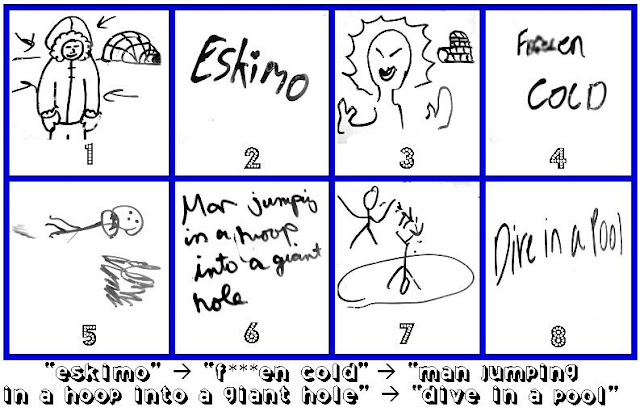 1
Eskimo
2
3
F en
COLD
4
5
Man jumping
in a hoop
into a giant
hole
6
7
Dive in a Pool
8
"eskimo" → "f***en cold" → "man jumping
in a hoop into a giant hole" → "dive in a pool"